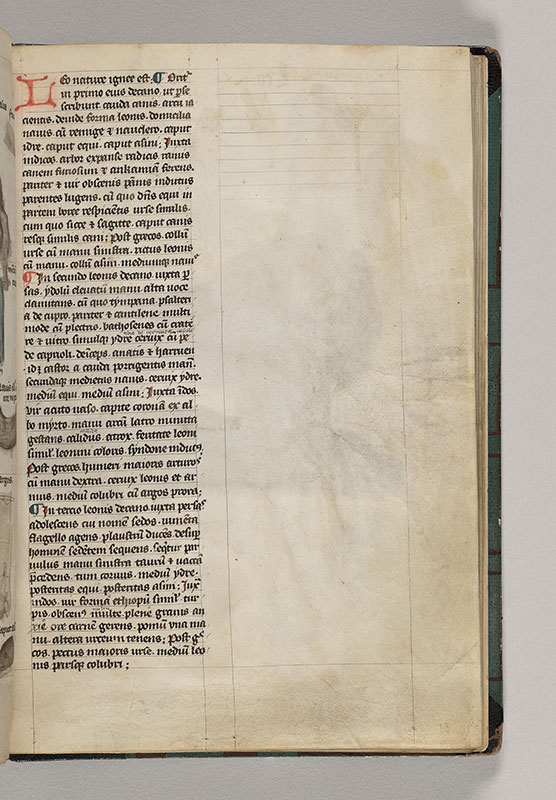 Leo nature ignee est. ¶ Orit᷑
in primo eius decano. ut p̄se
scribunt. cauda canis. arcu ia
cientis. deinde forma leonis. domicilia
nauis cū remige ⁊ nauclero. caput
idre. caput equi. caput asini; Iuxta
indicos. arbor expanse radicis ramis
canem furiosum ⁊ ankamiā ferens.
pariter ⁊ uir obscenis pānis indutus
parentes lugens. cū quo dn̄s equi in
partem boree respiciētis urse similis.
cum quo sice ⁊ sagitte. caput canis
similis cani; Post grecos. collū
urse cū manu sinistra. rictus leonis
cū manu. collū asini. mediumq̄ nauis
¶ In secundo leonis decano. iuxta p̄
sas. ydolū eleuatū manu alta uoce
clamitans. cū quo tympana. psalteri
a de cupro. pariter ⁊ cantilene multi
mode cū plectris. bathosenes cū crate
re ⁊ uitro. simulq̄ ydre ceruix cū pe
de caprioli. deīceps. anatis ⁊
castor a cauda porrigentis manū.
secundaq̄ medietas nauis. ceruix ydre.
mediū equi. mediū asini; Iuxta īdos.
uir acuto naso. capite coronā ex al
bo myrto. manu arcū latro minuta
gestans. calidus. atrox. feritate leoni
simil᷑. leonini coloris. syndone indutus.
Post grecos. humeri maioris arturi
cū manu dextra. ceruix leonis et ar
mus. mediū colubri cū argos prora;
¶ In tercio leonis decano. iuxta persas
adolescens cui nomen sedos. iumēta
flagello agens. plaustrū ducēs. desup
hominē sedētem sequens. seqt̄ur par
uulus manu sinistra taurū ⁊ uaccā
p̄cedens. tum coruus. mediū ydre.
posteritas equi. posteritas asini; Iux̄
indos. uir forma ethiopū simil᷑. tur
pis. obscenus multe. plene grauis an
xie. ore carnē gerens. pomū una ma
nu. altera urceum tenens; Post g̊
cos. pectus maioris urse. mediū leo
nis parsq̄ colubri;